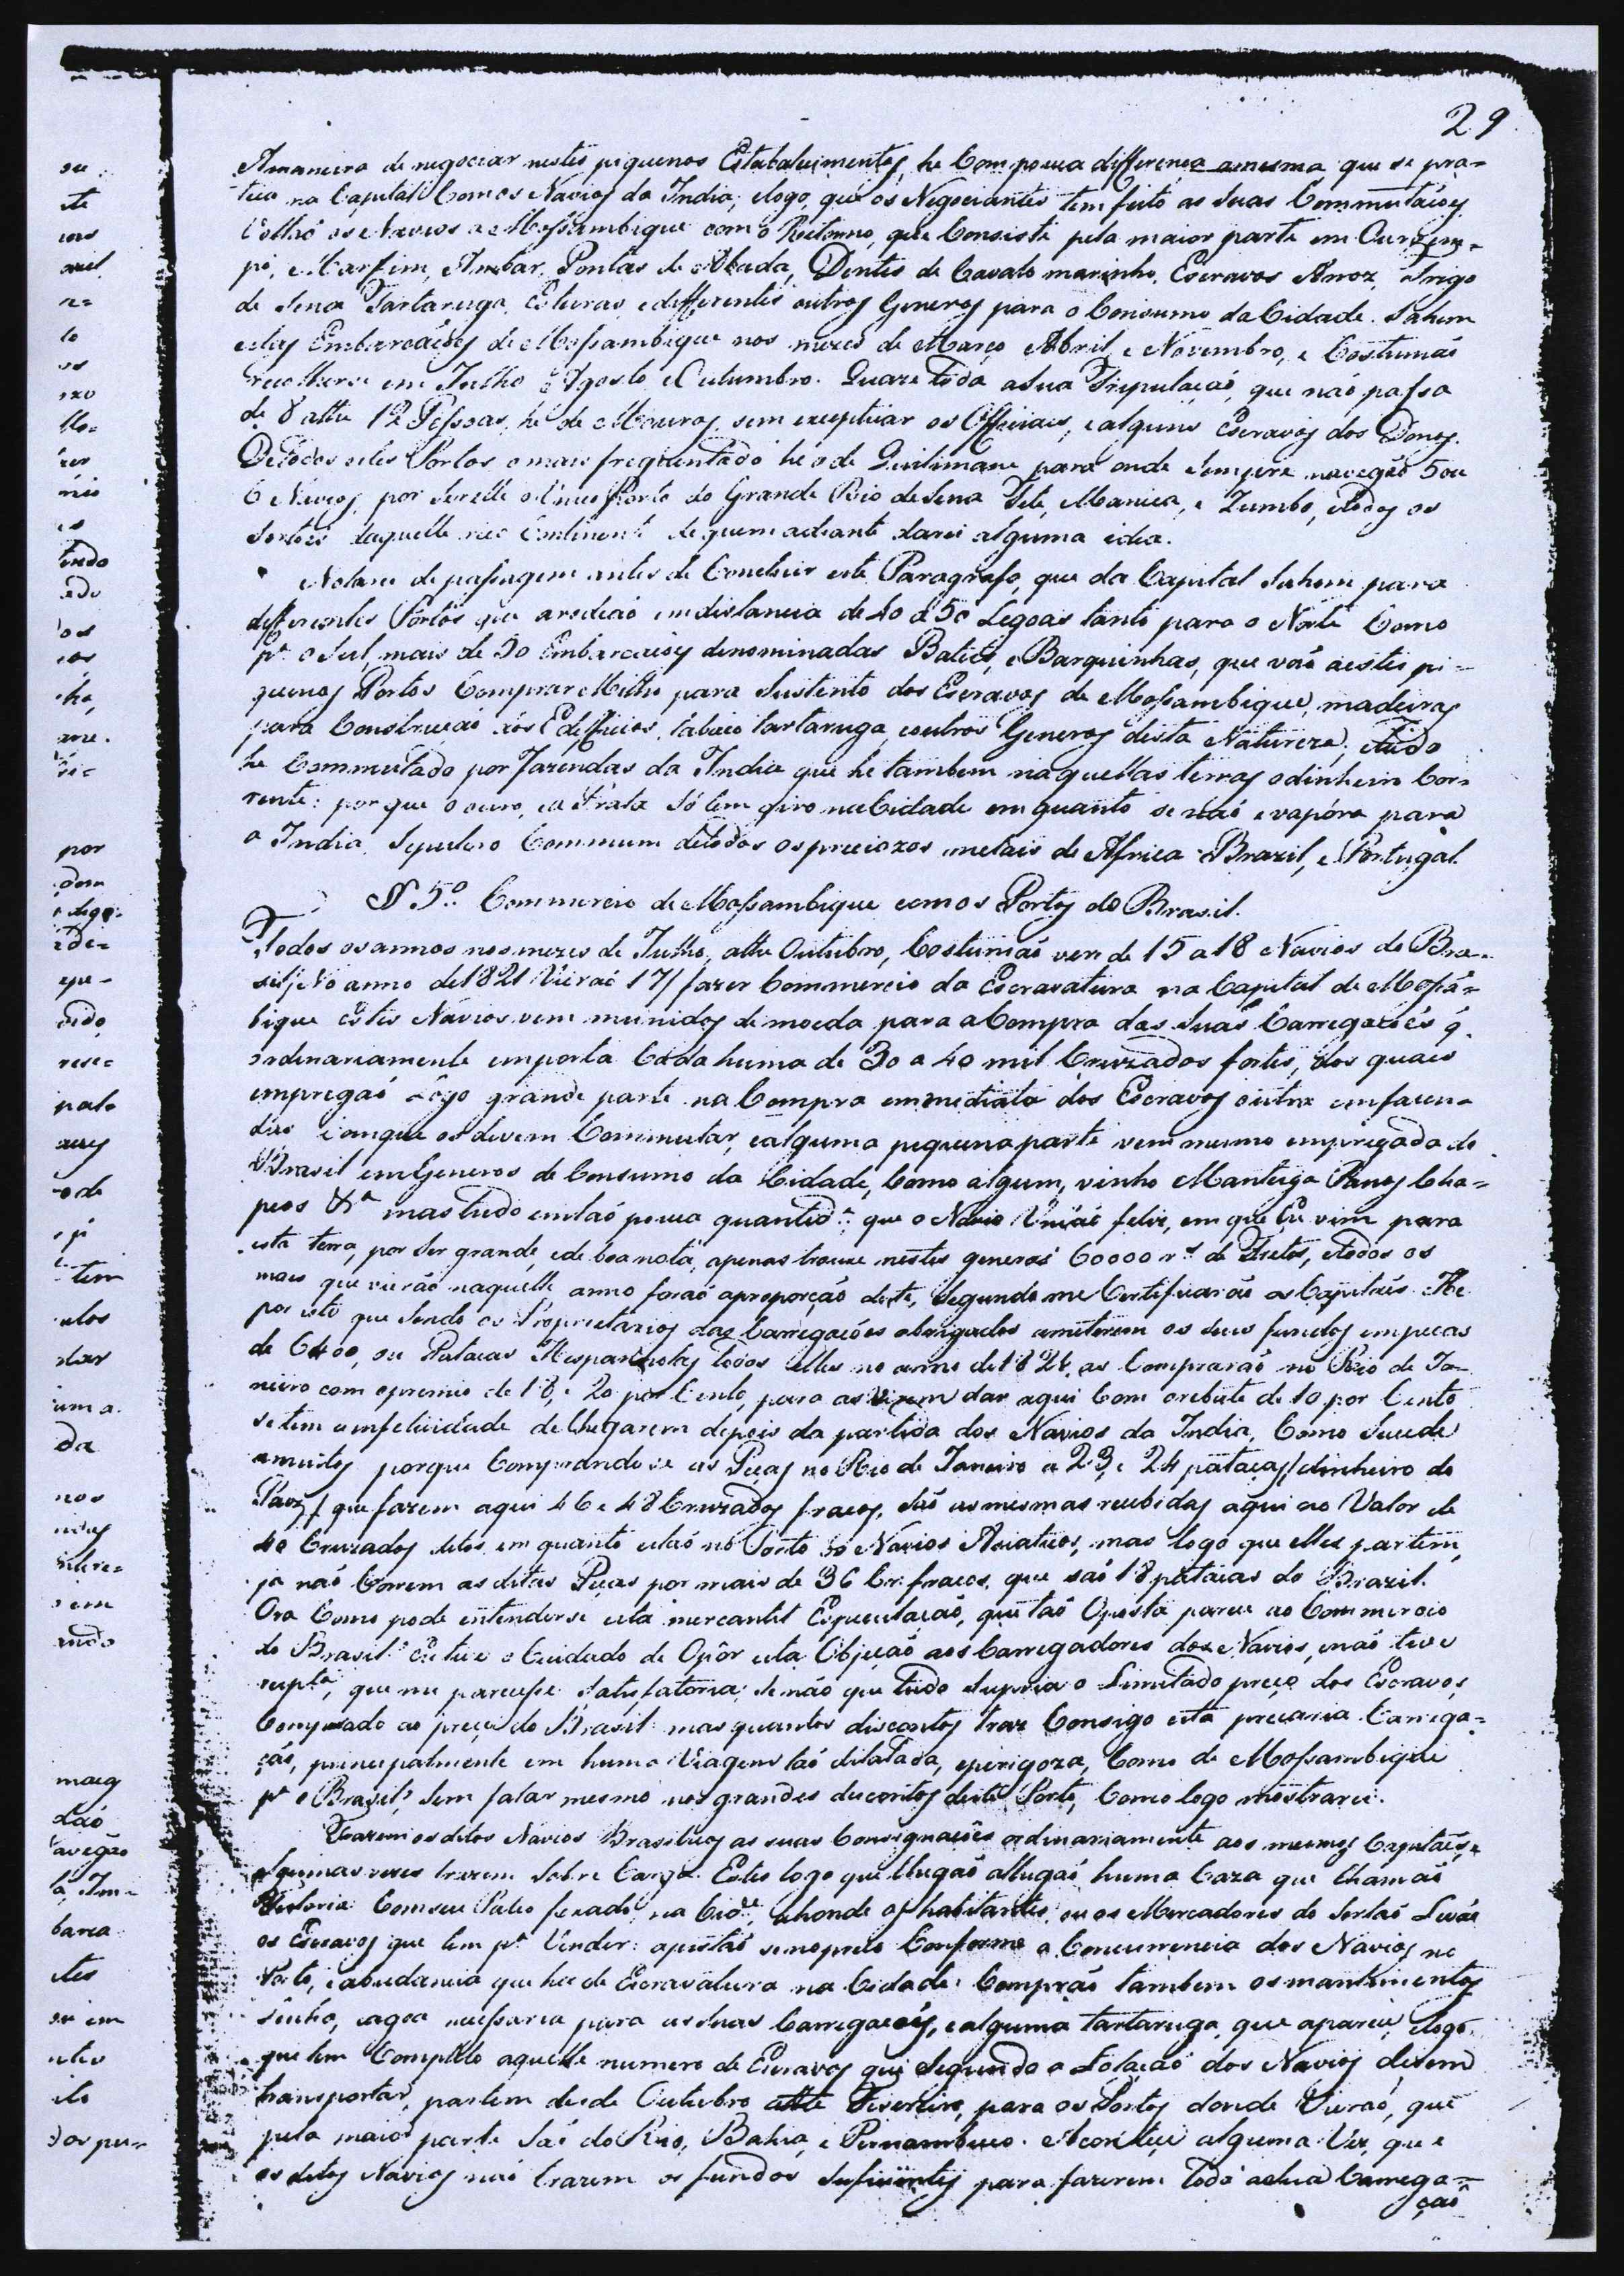 29
A maneira de negociar nestes piquenos Estabalecimentos, he Com pouca differença a mesma que se pra-
tica na Capital Com os Navios da India, e logo, que os Negociantes tem feito as suas Commutaçoẽs
voltaó os Navios a Mossambique com o Retorno, que Consiste pela maior parte em Ouro em
pó, Marfim, Ambar, Pontas de Abada, Dentes de Cavalo marinho, Escravos Arroz, Trigo
de Sena Tartaruga, Esteiras, e differentes outros Generos para o Consumo da Cidade. Sahem
estas Embarcaçoẽs de Mossambique nos mezes de Março Abril, e Novembro, e Costumaó
recolherse em Julho Agosto, e Outumbro. Quaze toda a sua Tripulaçaó, que naó passa
de 8 athe 12 Pessoas, he de Mouros, sem exceptuar os Officiais, e alguns Escravos dos Donos.
De todos estes Portos o mais freqüentado he o de Quilimane para onde sempre navegaõ 5 ou
6 Navios, por ser elle o unico Porto do Grande Rio de Sena Tete, Manica, e Zumbo, e todos os
Sertoẽs daquelle rico Continente de quem adiante darei alguma idea.
Notarei de passagem antes de Concluir este Paragrafo, que da Capital Sahem para
differentes Portos que a rodeaó em distancia de 40 a 50 Legoas tanto para o Norte Como
pª o Sul, mais de 30 Embarcaçoẽs denominadas Bateis, e Barquinhas, que vaó a estes pi-
quenos Portos Comprar Milho para Sustento dos Escravos de Mossambique, madeiras
para Construcaó dos Edefficios, tabaco tartaruga, e outros Generos desta Natureza; e tudo
he Commutado por fazendas da India que he tambem naquellas terras o dinheiro Cor-
rente: por que o ouro, e a Prata só tem giro na Cidade em quanto se naó evapóra para
a India Sepulcro Commum de todos os preciozos metais de Africa Brazil, e Portugal.
§ 5º. Commercio de Mossambique com os Portos do Brasil.
Todos os annos nos mezes de Julho, athe Outubro, Costumaó vir de 15 a 18 Navios do Bra-
sil /No anno de 1821 Vieraó 17/ fazer Commercio da Escravatura na Capital de Mossá-
bique Estes Navios vem munidos de moeda para a Compra das Suas Carregaçoẽs q̃
ordinariamente importa Cada huma de 30 a 40 mil Cruzados fortes, dos quais
empregaó Logo grande parte na Compra immediata dos Escravos outra em fazen-
das com que os devem Commutar, e alguma pequena parte vem mesmo empregada do
Brasil em Generos de Consumo da Cidade, Como algum, vinho Manteiga Panos Cha-
peos &ª mas tudo em taó pouca quantidᵉ: que o Navio Uniaó feliz, em que Eu vim para
esta terra, por ser grande, e de boa nota, apenas trouxe nestes generos 60000 rˢ de Fretes, e todos os
mais que vieraõ naquelle anno foraó a proporçaó deste, Segundo me Certificaraõ os Capitaẽs. He
por isto que sendo os Proprietarios das Carregaçoẽs obrigados a meterem os seus fundos em pecas
de 6400, ou Patacas Hespanholas todos elles no anno de 1821, as Compraraó no Rio de Ja-
neiro com o premio de 18, e 20 por Cento, para as virem dar aqui Com o rebate de 10 por Cento
se tem a infelicidade de Chegarem depois da partida dos Navios da India, Como sucede
a muitos porque Comprando se as Peças no Rio de Janeiro a 23, e 24 patacas/dinheiro do
Paoz/ que fazem aqui 46 e 48 Cruzados fracos, Saó as mesmas recebidas aqui ao Valor de
40 Cruzados ditos em quanto estaó no Porto os Navios Asiaticos, mas logo que elles partem,
ja naó Correm as ditas Peças por mais de 36 Cr. fracos, que saó 18 patacas do Brazil.
Ora Como pode entenderse esta mercantil Especulaçaó, que taó Oposta parece ao Commercio
do Brasil? Eu tive o Cuidado de Opôr esta Objeçaó aos Carregadores dos Navios, e naó tive
respᵗᵃ, que me parecesse satisfatoria; senaõ que tudo Supria o Limitado preço dos Escravos
Comparado ao preço do Brasil: mas quantos discontos traz Consigo esta precaria Carrega-
çaó, principalmente em huma Viagem taó dilatada, e perigoza, Como de Mossambique
pª o Brasil, Sem falar mesmo nos grandes descontos deste Porto, Como logo mostrarei.
Trazem os ditos Navios Brasilicos as suas Consignaçoẽs ordinariamente aos mesmos Capitaẽs, e
algumas vezes trazem Sobre Carga. Estes logo que Chegaó allugaó huma Caza que Chamaó
Feitoria Com seu Patio fexado na Cidᵉ, ahonde os habitantes, ou os Mercadores do Sertaó Levaõ
os Escravos que tem pª Vender: ajustaó se no preço Conforme a Concurrencia dos Navios no
Porto, e abundancia que ha de Escravatura na Cidade: Compraó tambem os mantimentos
Lenha, e agoa necessaria para as suas Carregaçoẽs, e alguma tartaruga que aparece, e logo
que tem Completo aquelle numero de Escravos que Segundo a Lotaçaó dos Navios devem
transportar, partem desde Outubro athe Fevereiro, para os Portos donde Vieraó, que
pela maior parte Saó do Rio, Bahia, e Pernambuco. Acontece alguma Vez, que e
os ditos Navios naó trazem os fundos suficientes para fazerem toda a sua Carrega-
çaó